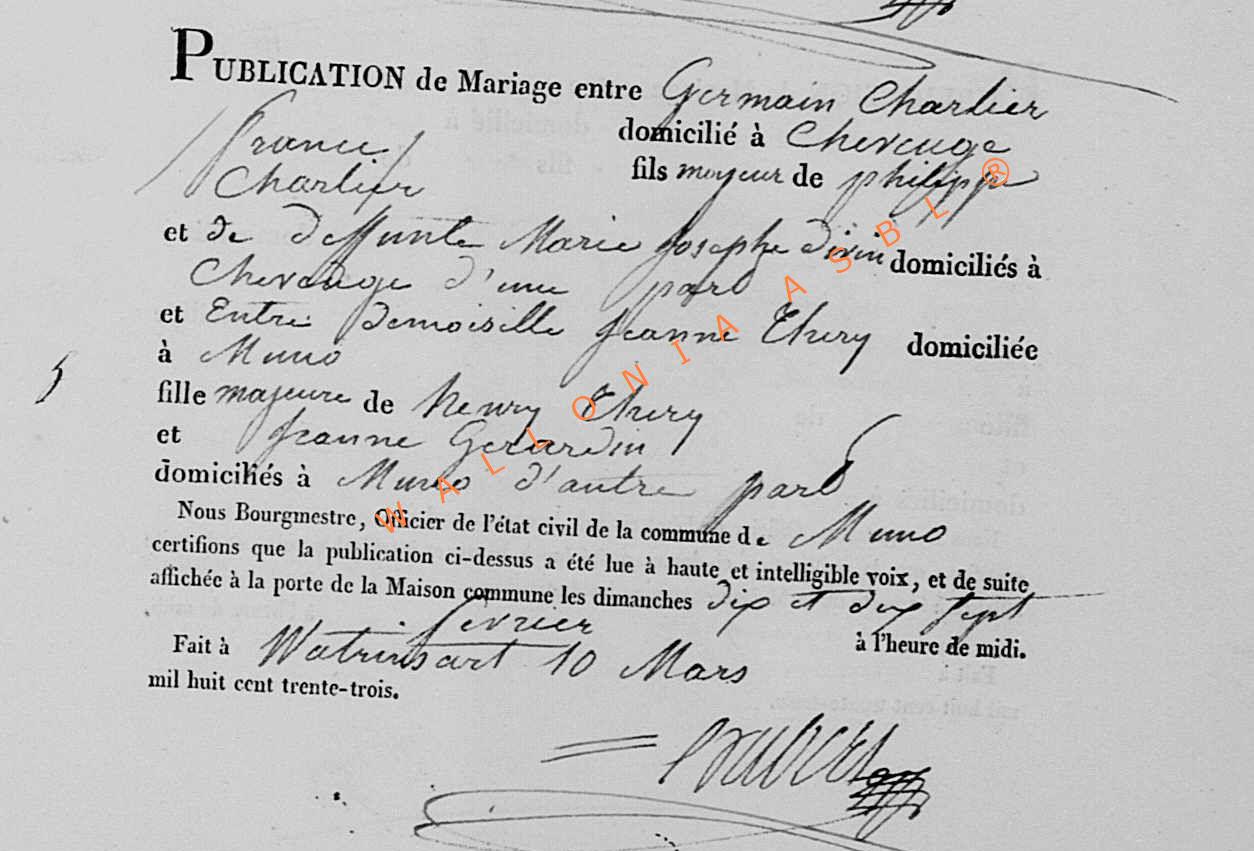 PUBLICATION de Mariage entre Germain Charlier
domicilié à Cheveuge
france
fils mayeur de philipp
Charlier
et de deffunte Marie Josephe divin domiciliés à
Cheveuge d'une part
et Entre demoiselle Jeanne Thiry domiciliée
à Muno
fille majeure de henry Thiry
et Jeanne Gerardin
domiciliés à Muno d'autre part
Nous Bourgmestre, Officier de l'état civil de la commune de Muno
certifions que la publication ci-dessus a été lue à haute et intelligible voix, et de suite
affichée à la porte de la Maison commune les dimanches dix et dix sept
fevrier
à l'heure de midi.
Fait à Watrinsart 10 Mars
mil huit cent trente-trois.
WALLONIA ASBL ®